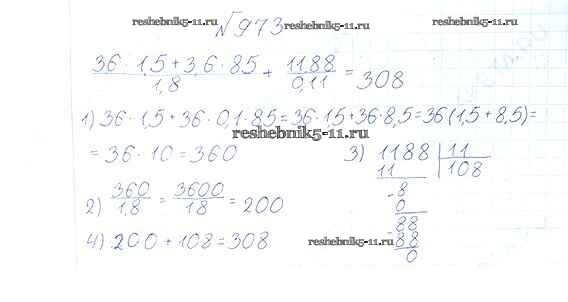 reshebnik5-11.ru
reshebnik5-11.ru
№973
(36 · 1,5 + 3,6 · 85)/1,8 + 11,88/0,11 = 308
1) 36 · 1,5 + 36 · 0,1 · 85 = 36 · 1,5 + 36 · 8,5 = 36 (1,5 + 8,5) =
reshebnik5-11.ru
= 36 · 10 = 360
2) 360/1,8 = 3600/18 = 200
3) 1188 | 11
11 | 108
-8
0
88
-88
0
4) 200 + 108 = 308
reshebnik5-11.ru